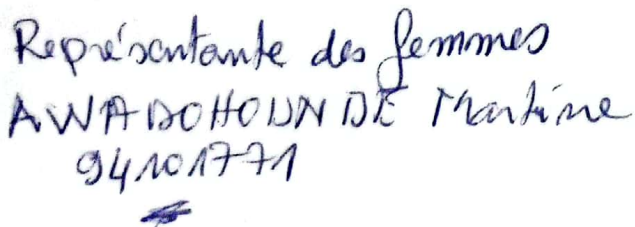 Représentante des femmes
AWADOHOUNDE Martine
94101771